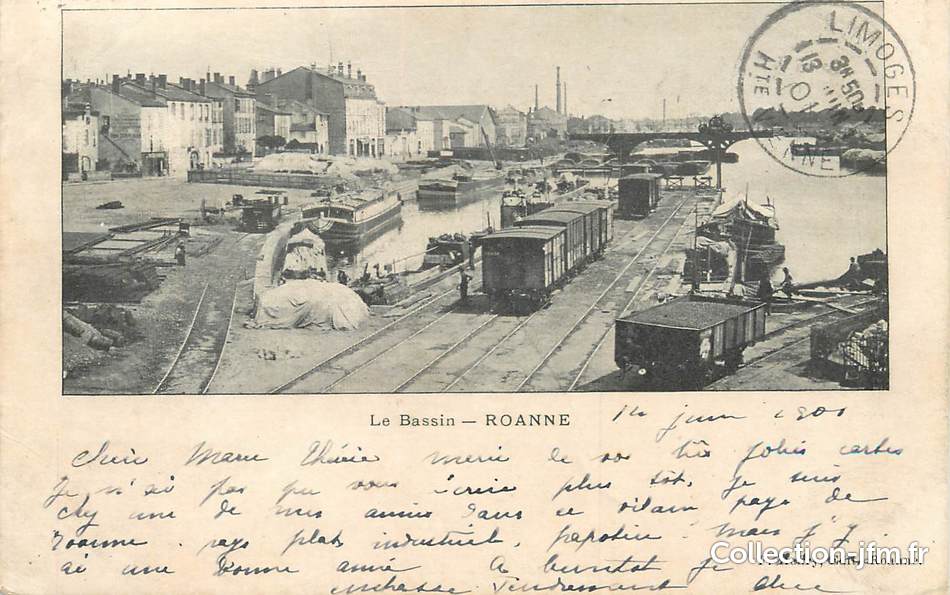 LIMOGES
Hte
VIENNE
13
JUIN
01
Le Bassin — ROANNE
14 juin 1901
Chère Marie Thérèse merci de vos très jolies cartes
Je n'ai pas pu vous écrire plus tôt. Je suis
chez une de mes amies dans ce vilain pays de
Roanne. pays plat, industriel, mais j'y
ai une bonne amie A bientôt je
embrasse tendrement
Collection-jfm.fr